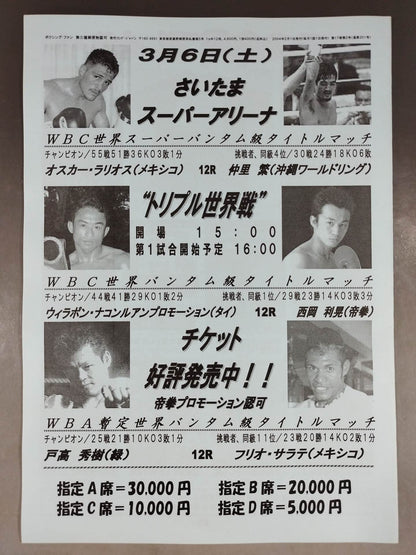 ボクシング ファン 第三種郵便物認可
3月6日(土)
さいたま
スーパーアリーナ
WBC世界スーパーバンタム級タイトルマッチ
チャンピオン/55戦51勝36KO3敗1分 挑戦者、同級4位/30戦24勝18KO6敗
オスカー・ラリオス(メキシコ) 12R 仲里 繁(沖縄ワールドリング)
“トリプル世界戦”
開場 15:00
第1試合開始予定 16:00
WBC世界バンタム級タイトルマッチ
チャンピオン/44戦41勝29KO1敗2分 挑戦者、同級1位/29戦23勝14KO3敗3分
ウィラポン・ナコンルアンプロモーション(タイ) 12R 西岡 利晃(帝拳)
チケット
好評発売中!!
帝拳プロモーション認可
WBA暫定世界バンタム級タイトルマッチ
チャンピオン/25戦21勝10KO3敗1分 挑戦者、同級11位/23戦20勝14KO2敗1分
戸高 秀樹(緑) 12R フリオ・サラテ(メキシコ)
指定A席=30.000円 指定B席=20.000円
指定C席=10.000円 指定D席=5.000円